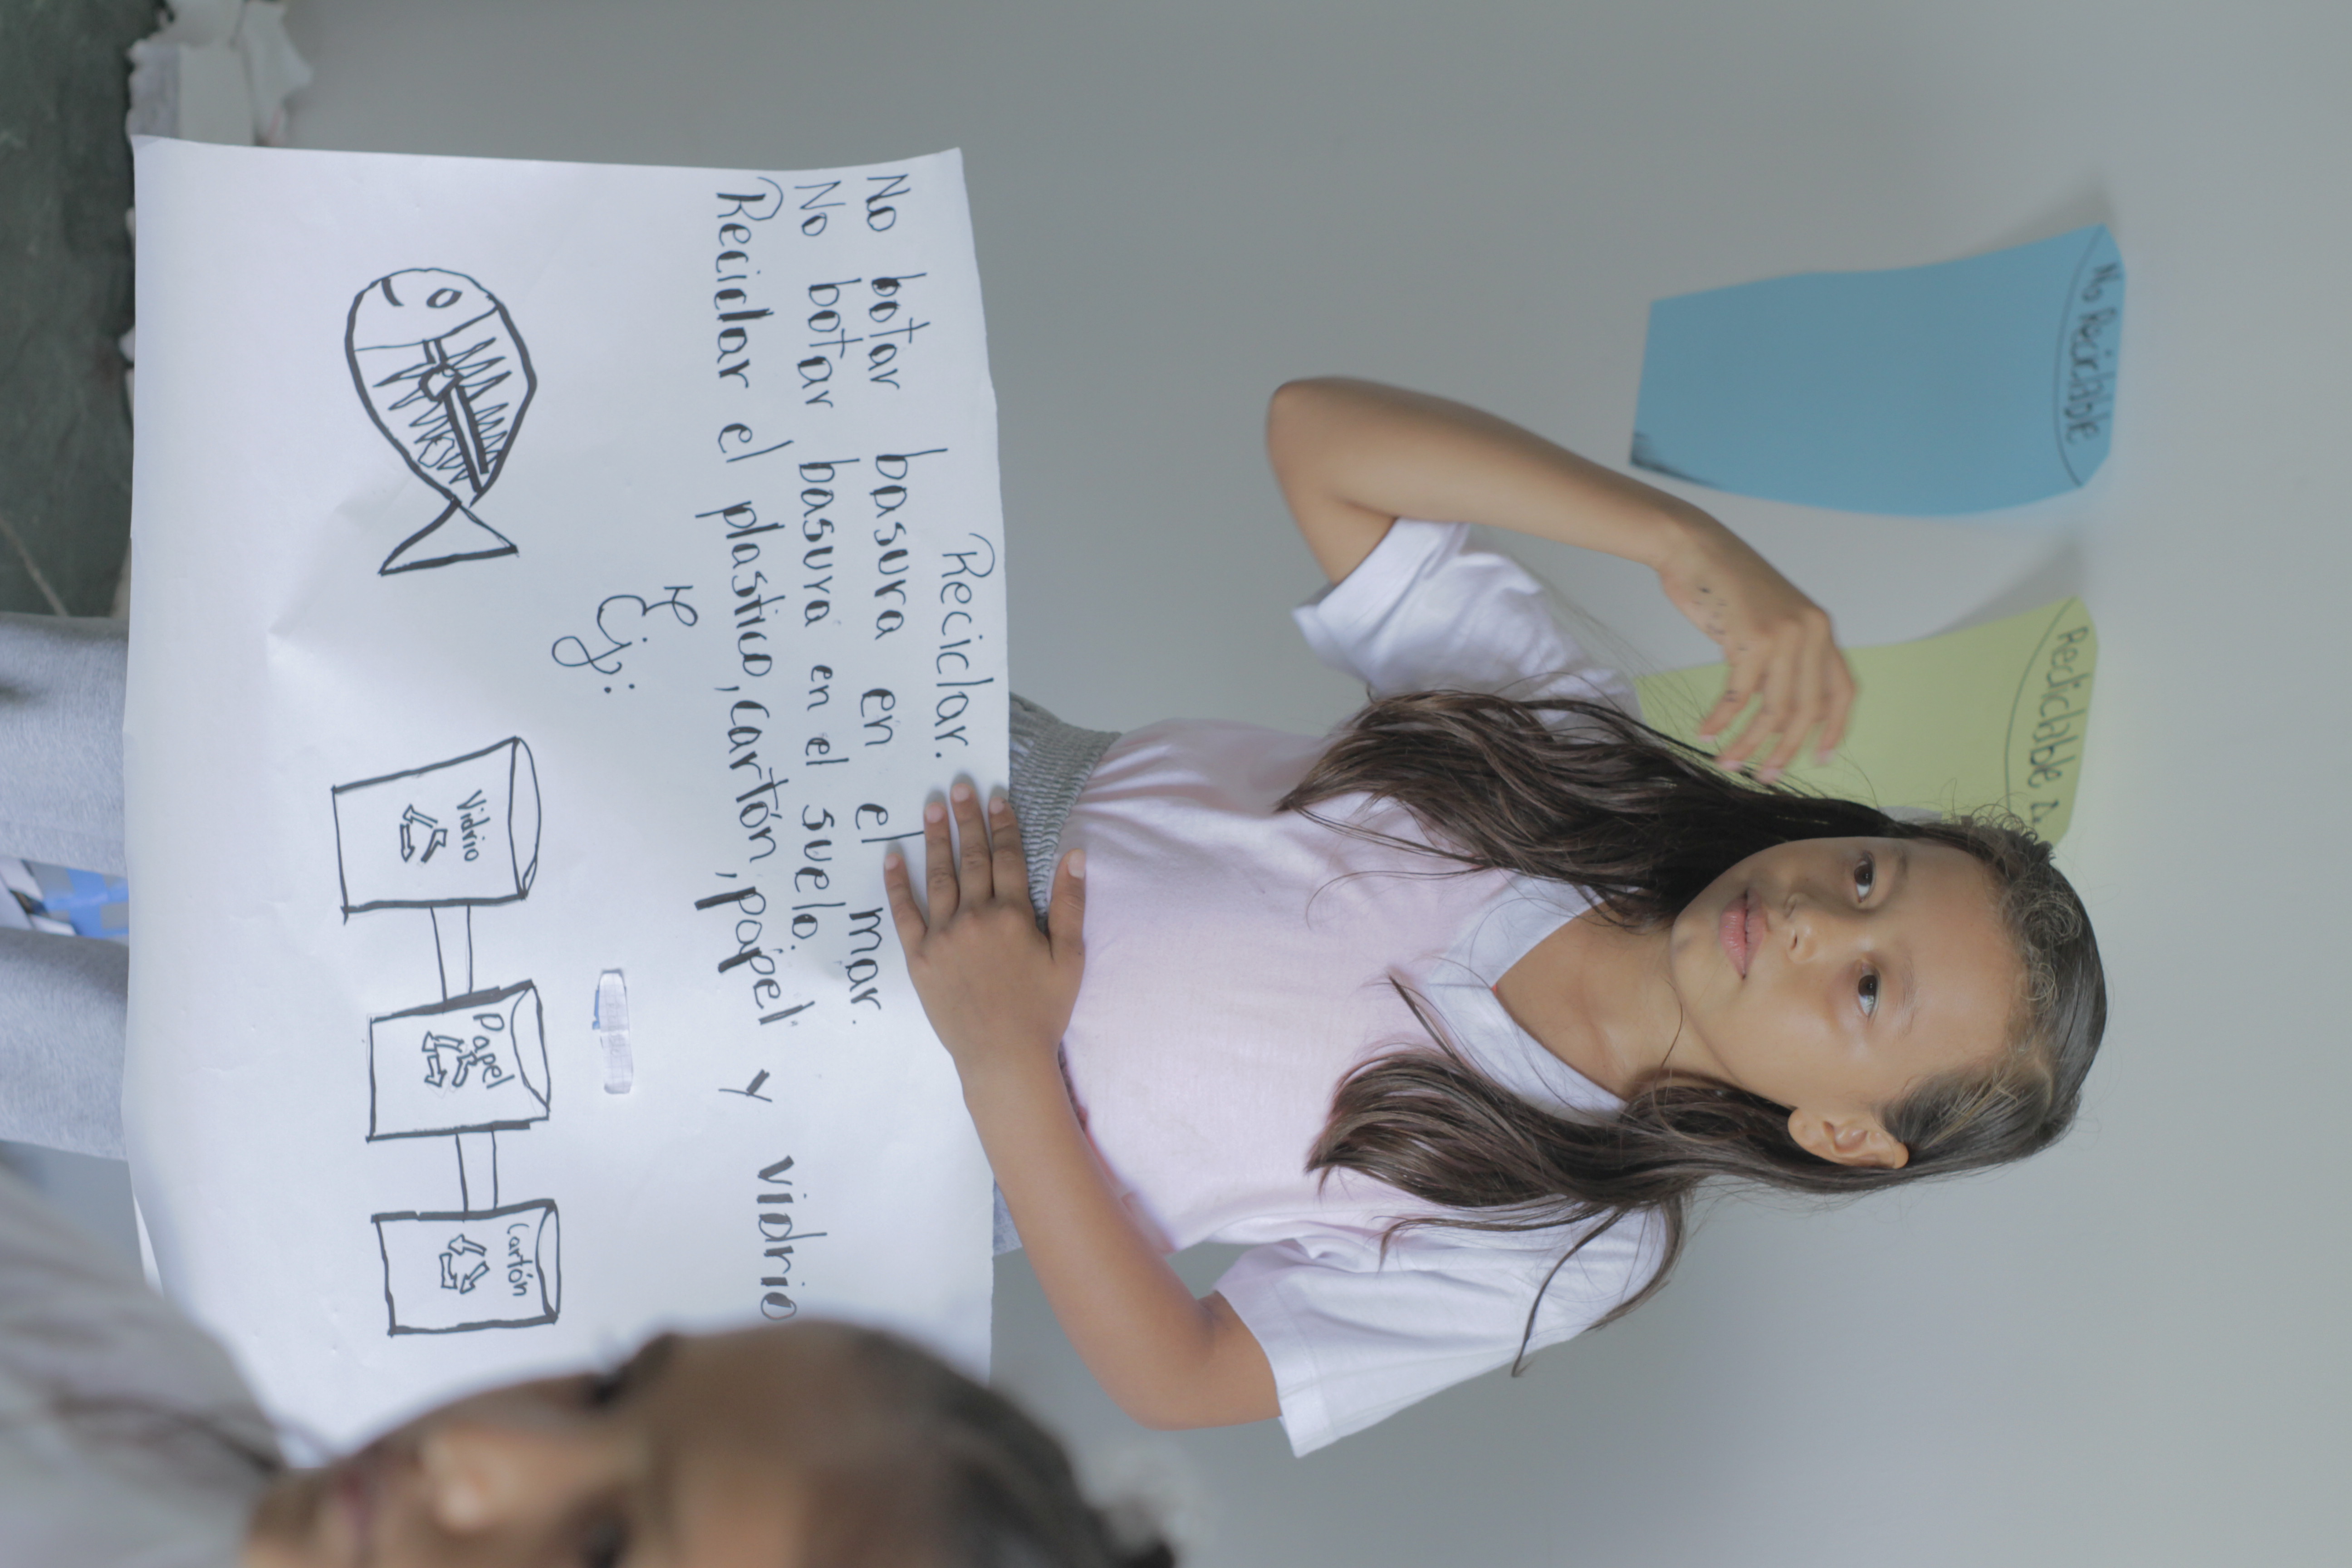 No Reciclable
Reciclable
Reciclar.
No botar basura en el mar.
No botar basura en el suelo.
Reciclar el plastico, cartón, papel y vidrio
Ej:
Vidrio
Papel
Cartón